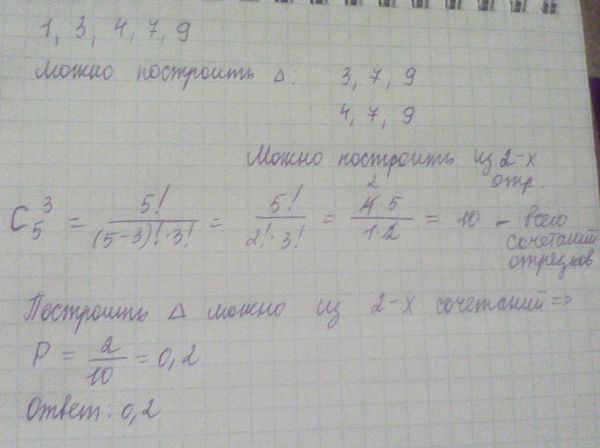 1, 3, 4, 7, 9
Можно построить Δ: 3, 7, 9
4, 7, 9
Можно построить из 2-х
отр.
C₅³ = 5!/((5-3)!·3!) = 5!/(2!·3!) = 4·5/(1·2) = 10 – всего
сочетаний
отрезков
Построить Δ можно из 2-х сочетаний =>
P = 2/10 = 0,2
Ответ: 0,2